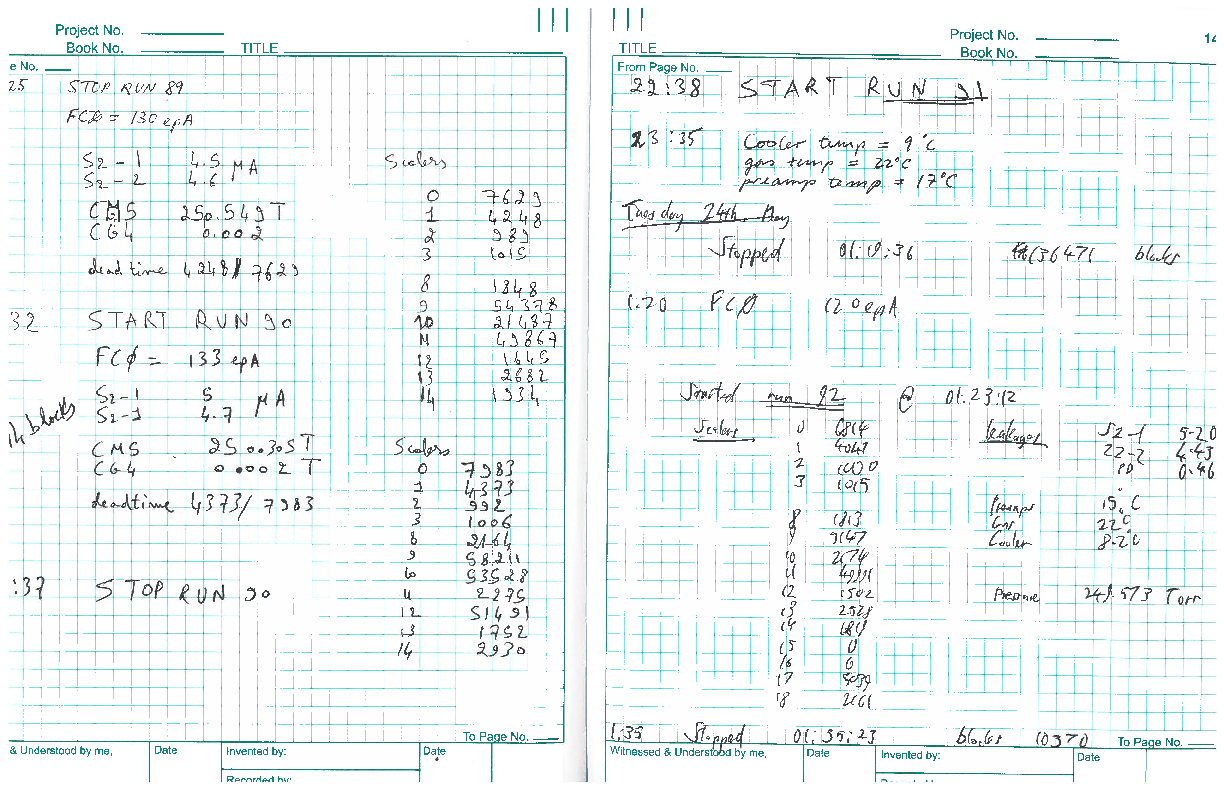 Project No.
Book No. TITLE
e No.
25 STOP RUN 89
FCØ = 130 epA
S2-1 4.5 µA
S2-2 4.6
CMS 250.549 T
CG4 0.002
dead time 4248/7629
Scalers
0 7629
1 4248
2 989
3 1015
8 1848
9 54378
10 21487
11 49867
12 1645
13 2682
14 1934
32 START RUN 90
FCØ = 133 epA
S2-1 5 µA
4.7
blocks
CMS 250.305 T
CG4 0.002 T
deadtime 4373/7983
Scalers
0 7983
1 4373
2 992
3 1006
8 2164
9 58211
10 53528
11 2275
12 51491
13 1752
14 2930
:37 STOP RUN 90
To Page No.
& Understood by me, Date Invented by: Date
Recorded by:
Project No.
Book No.
TITLE
14
From Page No.
22:38 START RUN 91
23:35 Cooler temp = 9°C
gas temp = 22°C
preamp temp = 17°C
Tuesday 24th May
Stopped 01:19:36 blocks
1:20 FCØ 120 epA
Started run 92 @ 01:23:12
Scalers
0 6814
1 4047
2
3 1015
8 1813
9
10 2674
11
12 1502
13 2528
14
15 0
16 0
17
18 2661
Leakages S2-1 5.20
22-2 4.43
0.46
Preamps 15°C
Gas 22°C
Cooler 8.2°C
Pressure 249.573 Torr
1:35 Stopped 01:35:23 blocks 10370
To Page No.
Witnessed & Understood by me, Date Invented by: Date